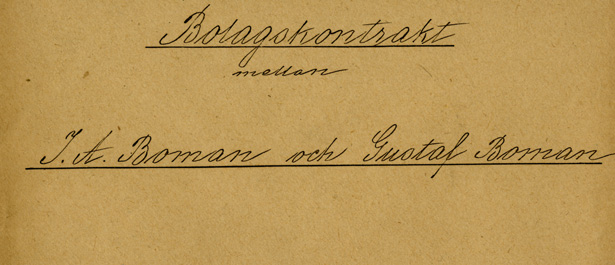 Bolagskontrakt
mellan
J. A. Boman och Gustaf Boman